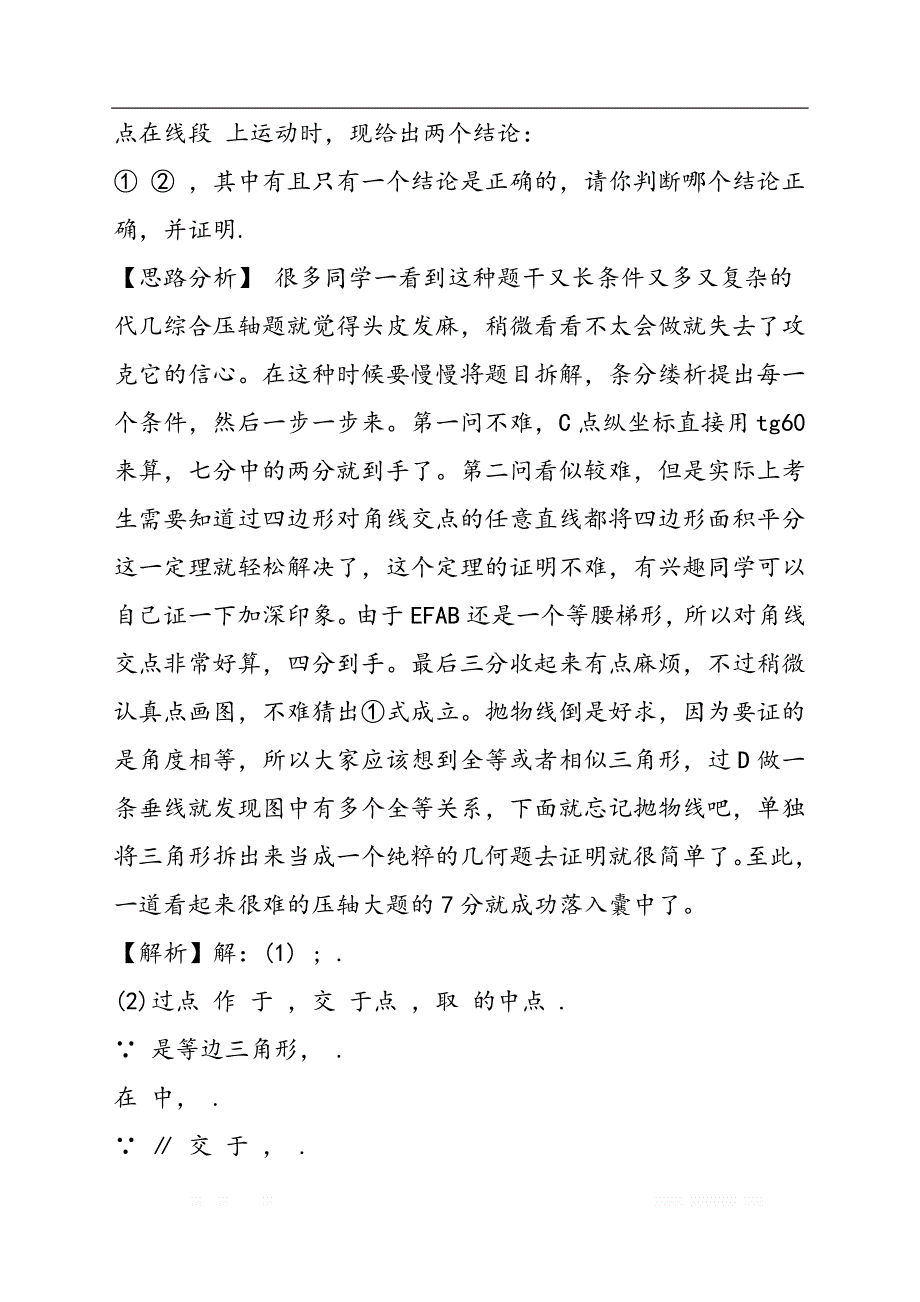 点在线段 上运动时，现给出两个结论：
① ② ，其中有且只有一个结论是正确的，请你判断哪个结论正
确，并证明.
【思路分析】 很多同学一看到这种题干又长条件又多又复杂的
代几综合压轴题就觉得头皮发麻，稍微看看不太会做就失去了攻
克它的信心。在这种时候要慢慢将题目拆解，条分缕析提出每一
个条件，然后一步一步来。第一问不难，C 点纵坐标直接用 tg60
来算，七分中的两分就到手了。第二问看似较难，但是实际上考
生需要知道过四边形对角线交点的任意直线都将四边形面积平分
这一定理就轻松解决了，这个定理的证明不难，有兴趣同学可以
自己证一下加深印象。由于 EFAB 还是一个等腰梯形，所以对角线
交点非常好算，四分到手。最后三分收起来有点麻烦，不过稍微
认真点画图，不难猜出①式成立。抛物线倒是好求，因为要证的
是角度相等，所以大家应该想到全等或者相似三角形，过 D 做一
条垂线就发现图中有多个全等关系，下面就忘记抛物线吧，单独
将三角形拆出来当成一个纯粹的几何题去证明就很简单了。至此，
一道看起来很难的压轴大题的 7 分就成功落入囊中了。
【解析】解：(1) ；.
(2)过点 作 于 ，交 于点 ，取 的中点 .
∵ 是等边三角形， .
在 中， .
∵ ∥ 交 于 ， .